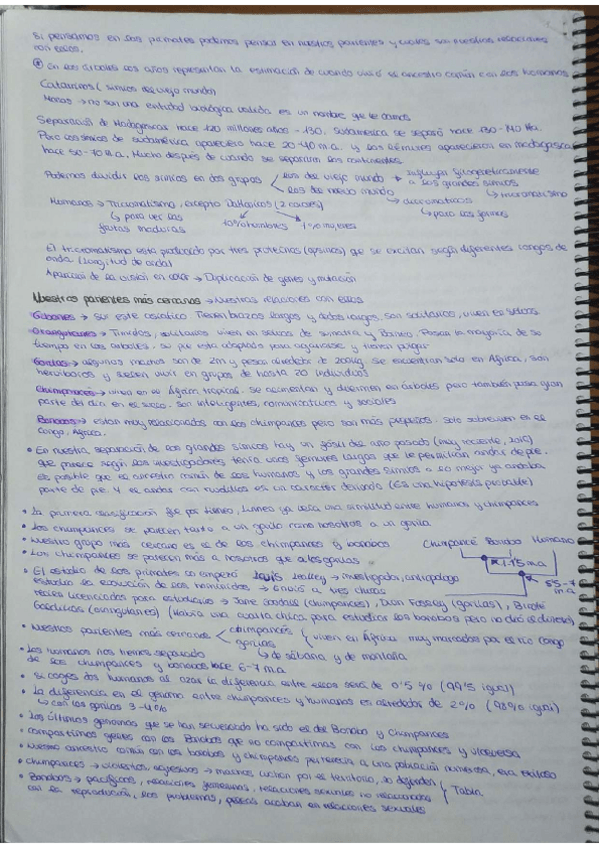 Si pensamos en los primates podemos pensar en nuestros parientes y cuales son nuestras relaciones
con ellos.
* En los árboles los años representan la estimación de cuando vivió el ancestro común con los humanos
Catarrinos (simios del viejo mundo)
Monos → no son una entidad biológica valida es un nombre que le damos
Separación de Madagascar hace 120 millones años - 130. Sudamerica se separó hace 130-140 Ma.
Pero los monos de sudamérica aparecieron hace 20-40 m.a. y los lémures aparecieron en madagascar
hace 50-70 m.a. Mucho después de cuando se separaron los continentes.
Podemos dividir los simios en dos grupos los del viejo mundo → incluyen filogeneticamente
a los grandes simios
los del nuevo mundo
→ dicromáticos
→ tricromatismo
Humanos → Tricromatismo, excepto Daltónicos (2 colores)
↳ para ver las
frutas maduras
10% hombres
1% mujeres
El tricromatismo está producido por tres proteínas (opsinas) que se excitan según diferentes longos de
onda (longitud de onda)
Aparición de la visión en color → Duplicación de genes y mutación
Nuestros parientes más cercanos → Nuestras relaciones con ellos
Gibones → Sur este asiático Tienen brazos largos y dedos largos, son solitarios, viven en selvas
Orangutanes → Timidos, solitarios viven en selvas de sumatra y Borneo. Pasan la mayoría de su
tiempo en los arboles, su pie esta adaptado para agarrarse y tienen pulgar
Gorilas → algunos machos son de 2m y pesos alrededor de 200kg se encuentran solo en África, son
herbivoros y suelen vivir en grupos de hasta 20 individuos
Chimpancés → viven en el África tropical. Se alimentan y duermen en árboles pero también pasan gran
parte del día en el suelo. Son inteligentes, comunicativos y sociales
Bonobos → estan muy relacionados con los chimpances pero son más pequeños. Solo sobreviven en el
Congo, África.
• En nuestra separación de los grandes simios hay un fósil del año pasado (muy reciente,
que parece según los investigadores tenía unos femures largos que le permitian andar de pie.
Es posible que el ancestro común de los humanos y los grandes simios a lo mejor ya andaba
parte de pie. Y el andar con nudillos es un carácter derivado (Es una hipótesis probable)
• La primera clasificación fue por Linneo, Linneo ya veía una similitud entre humanos y chimpances
• Los chimpances se parecen tanto a un gorila como nosotros a un gorila
• Nuestro grupo más cercano es el de los chimpances y bonobos
Chimpancé Bonobo Humano
• Los chimpances se parecen más a nosotros que a los gorilas
1-1'5 m.a
5'5-7
m.a
• El estudio de los primates lo empezó Louis Leakey → investigador, antropólogo
estudia la evolución de los homínidos → Envió a tres chicas
recien licenciadas para estudiarlo → Jane Goodall (chimpances), Dian Fossey (gorilas), Biruté
Galdikas (orangutanes) (Había una cuarta chica para estudiar los bonobos pero no dió el dinero)
• Nuestros parientes más cercanos chimpancés
gorilas
viven en África muy marcados por el río Congo
↳ de sabana y de montaña
• Los humanos nos hemos separado
de los chimpances y bonobos hace 6-7 m.a
• Si coges dos humanos al azar la diferencia entre ellos será de 0'5 % (99'5 igual)
• La diferencia en el genoma entre chimpances y humanos es alrededor de 2% (98% igual)
↳ con los gorilas 3-4%
• Los últimos genomas que se han secuenciado ha sido el del Bonobo y Chimpances
• compartimos genes con los Bonobos que no compartimos con los chimpances y viceversa
• Nuestro ancestro común con los bonobos y chimpances pertenecía a una población numerosa, era exitoso
• Chimpances → violentos, agresivos → machos luchan por el territorio, lo defienden
• Bonobos → pacíficos, relaciones sexuales no relacionadas
con la reproducción, los problemas, peleas acaban en relaciones sexuales